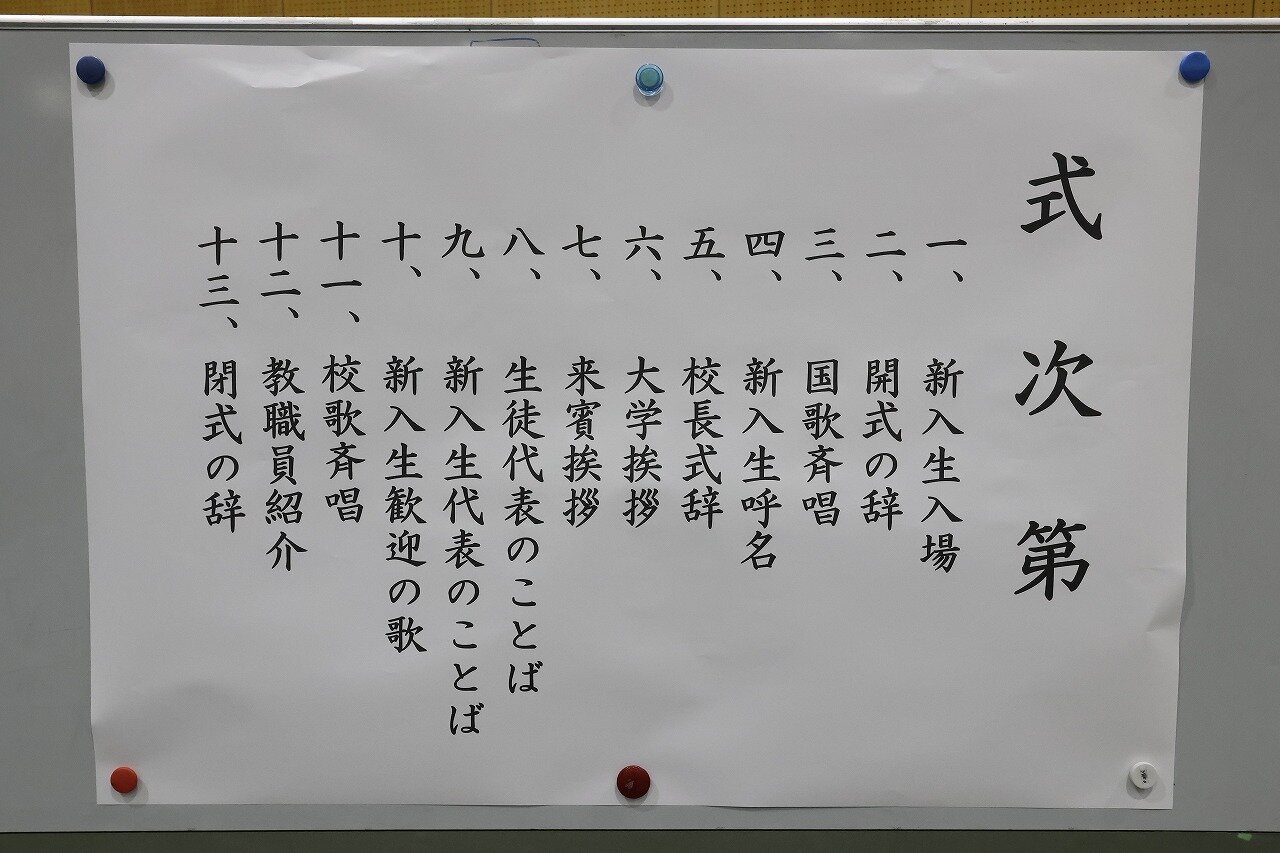 式次第
一、新入生入場
二、開式の辞
三、国歌斉唱
四、新入生呼名
五、校長式辞
六、大学挨拶
七、来賓挨拶
八、生徒代表のことば
九、新入生代表のことば
十、新入生歓迎の歌
十一、校歌斉唱
十二、教職員紹介
十三、閉式の辞